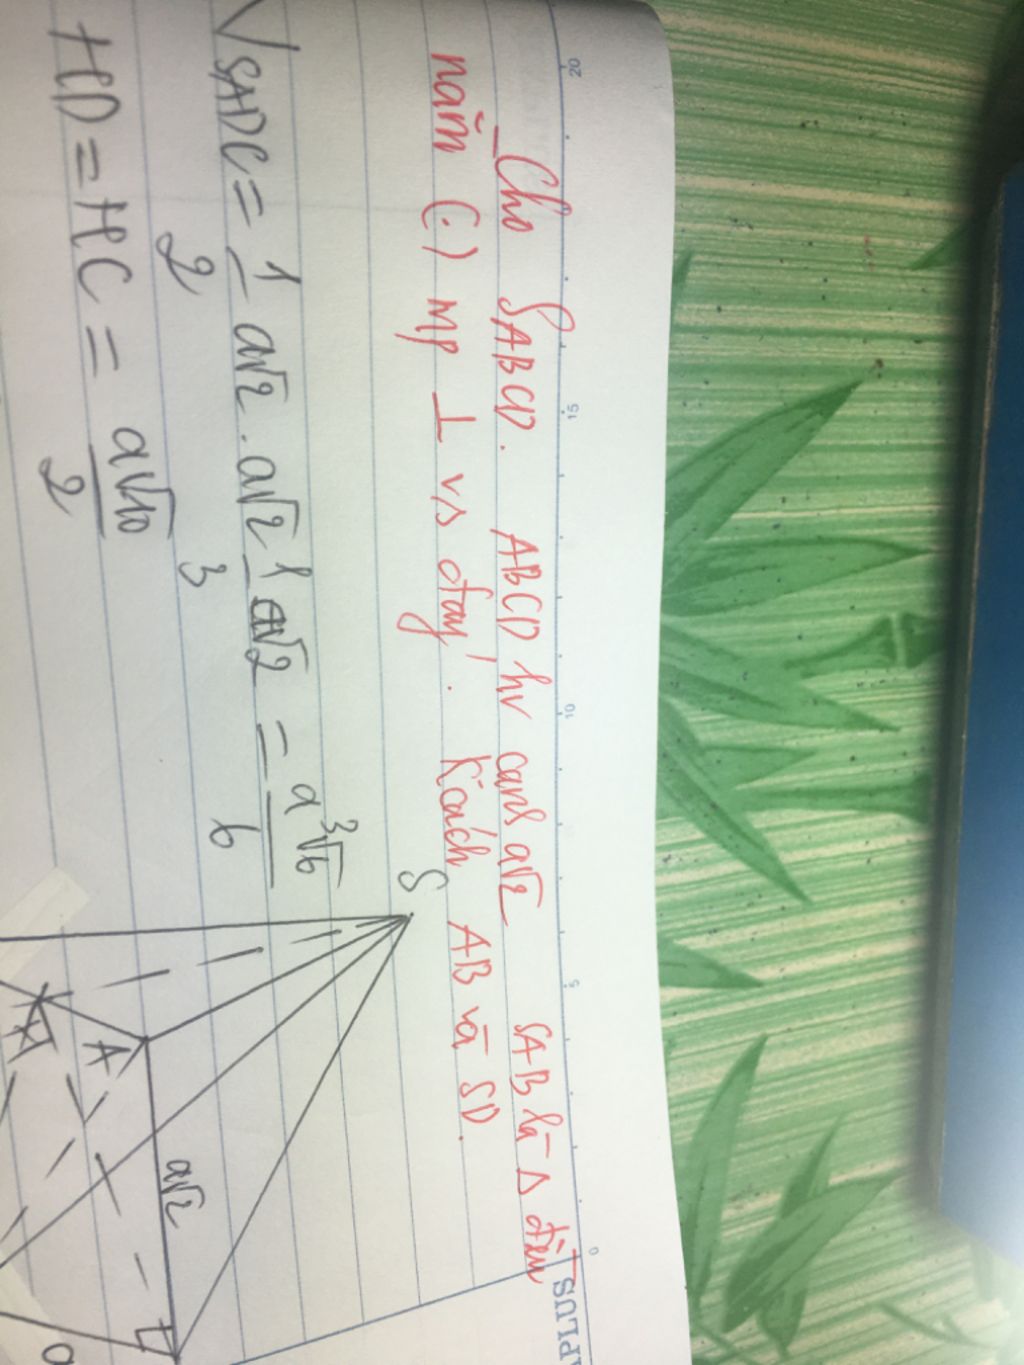 Cho SABCD. ABCD hv cạnh a√2 SAB là Δ đều
nằm (·) mp ⊥ vs đáy. K cách AB và SD.
VSADC = 1/2 a√2 . a√2 1/3 a√2 = a³√6/6
HD = HC = a√10/2
S
A
a√2
20
15
10
5
0
APLUS